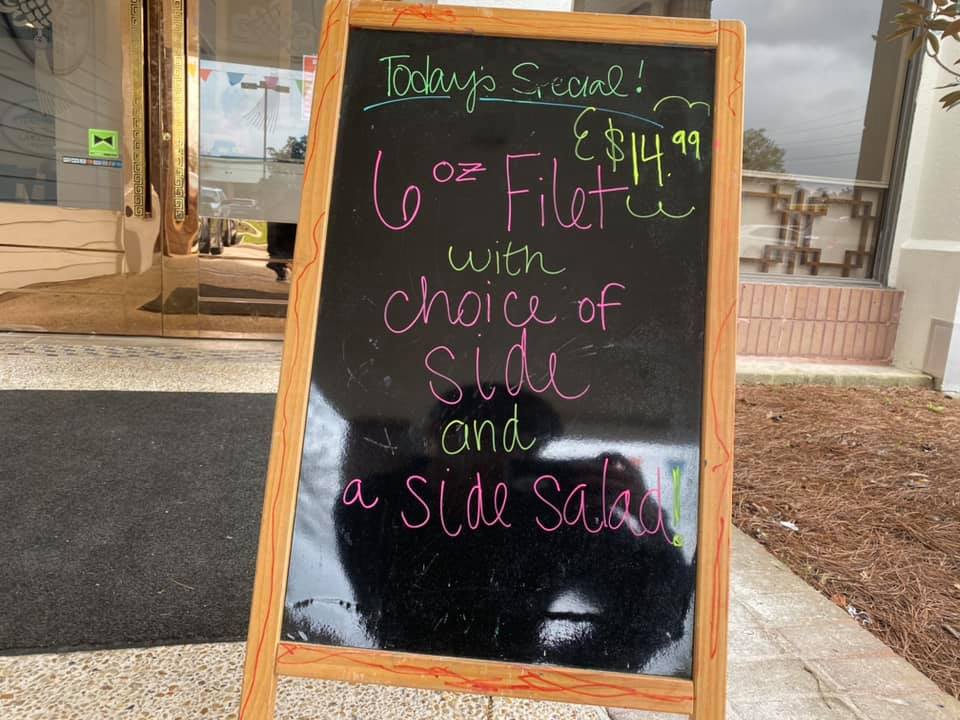 Today's Special!
$14.99
6 oz Filet
with
choice of
side
and
a side salad!